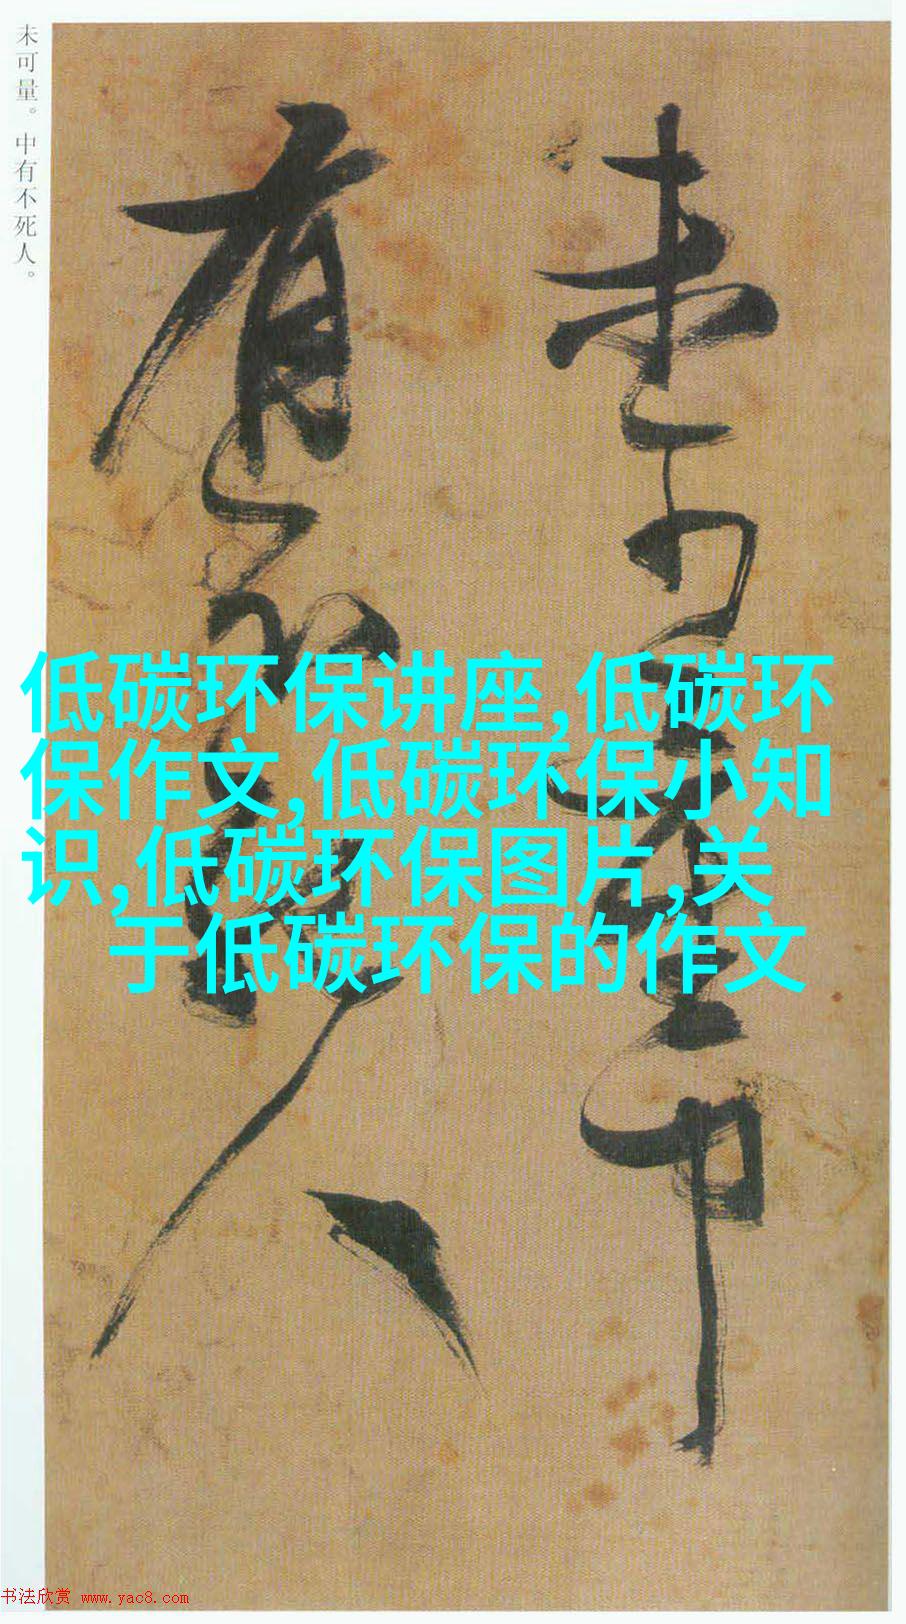 未可量。中有不死人。
未可量中
有不死人
低碳环保讲座,低碳环
保作文,低碳环保小知
识,低碳环保图片,关
于低碳环保的作文
书法欣赏 www.yac8.com